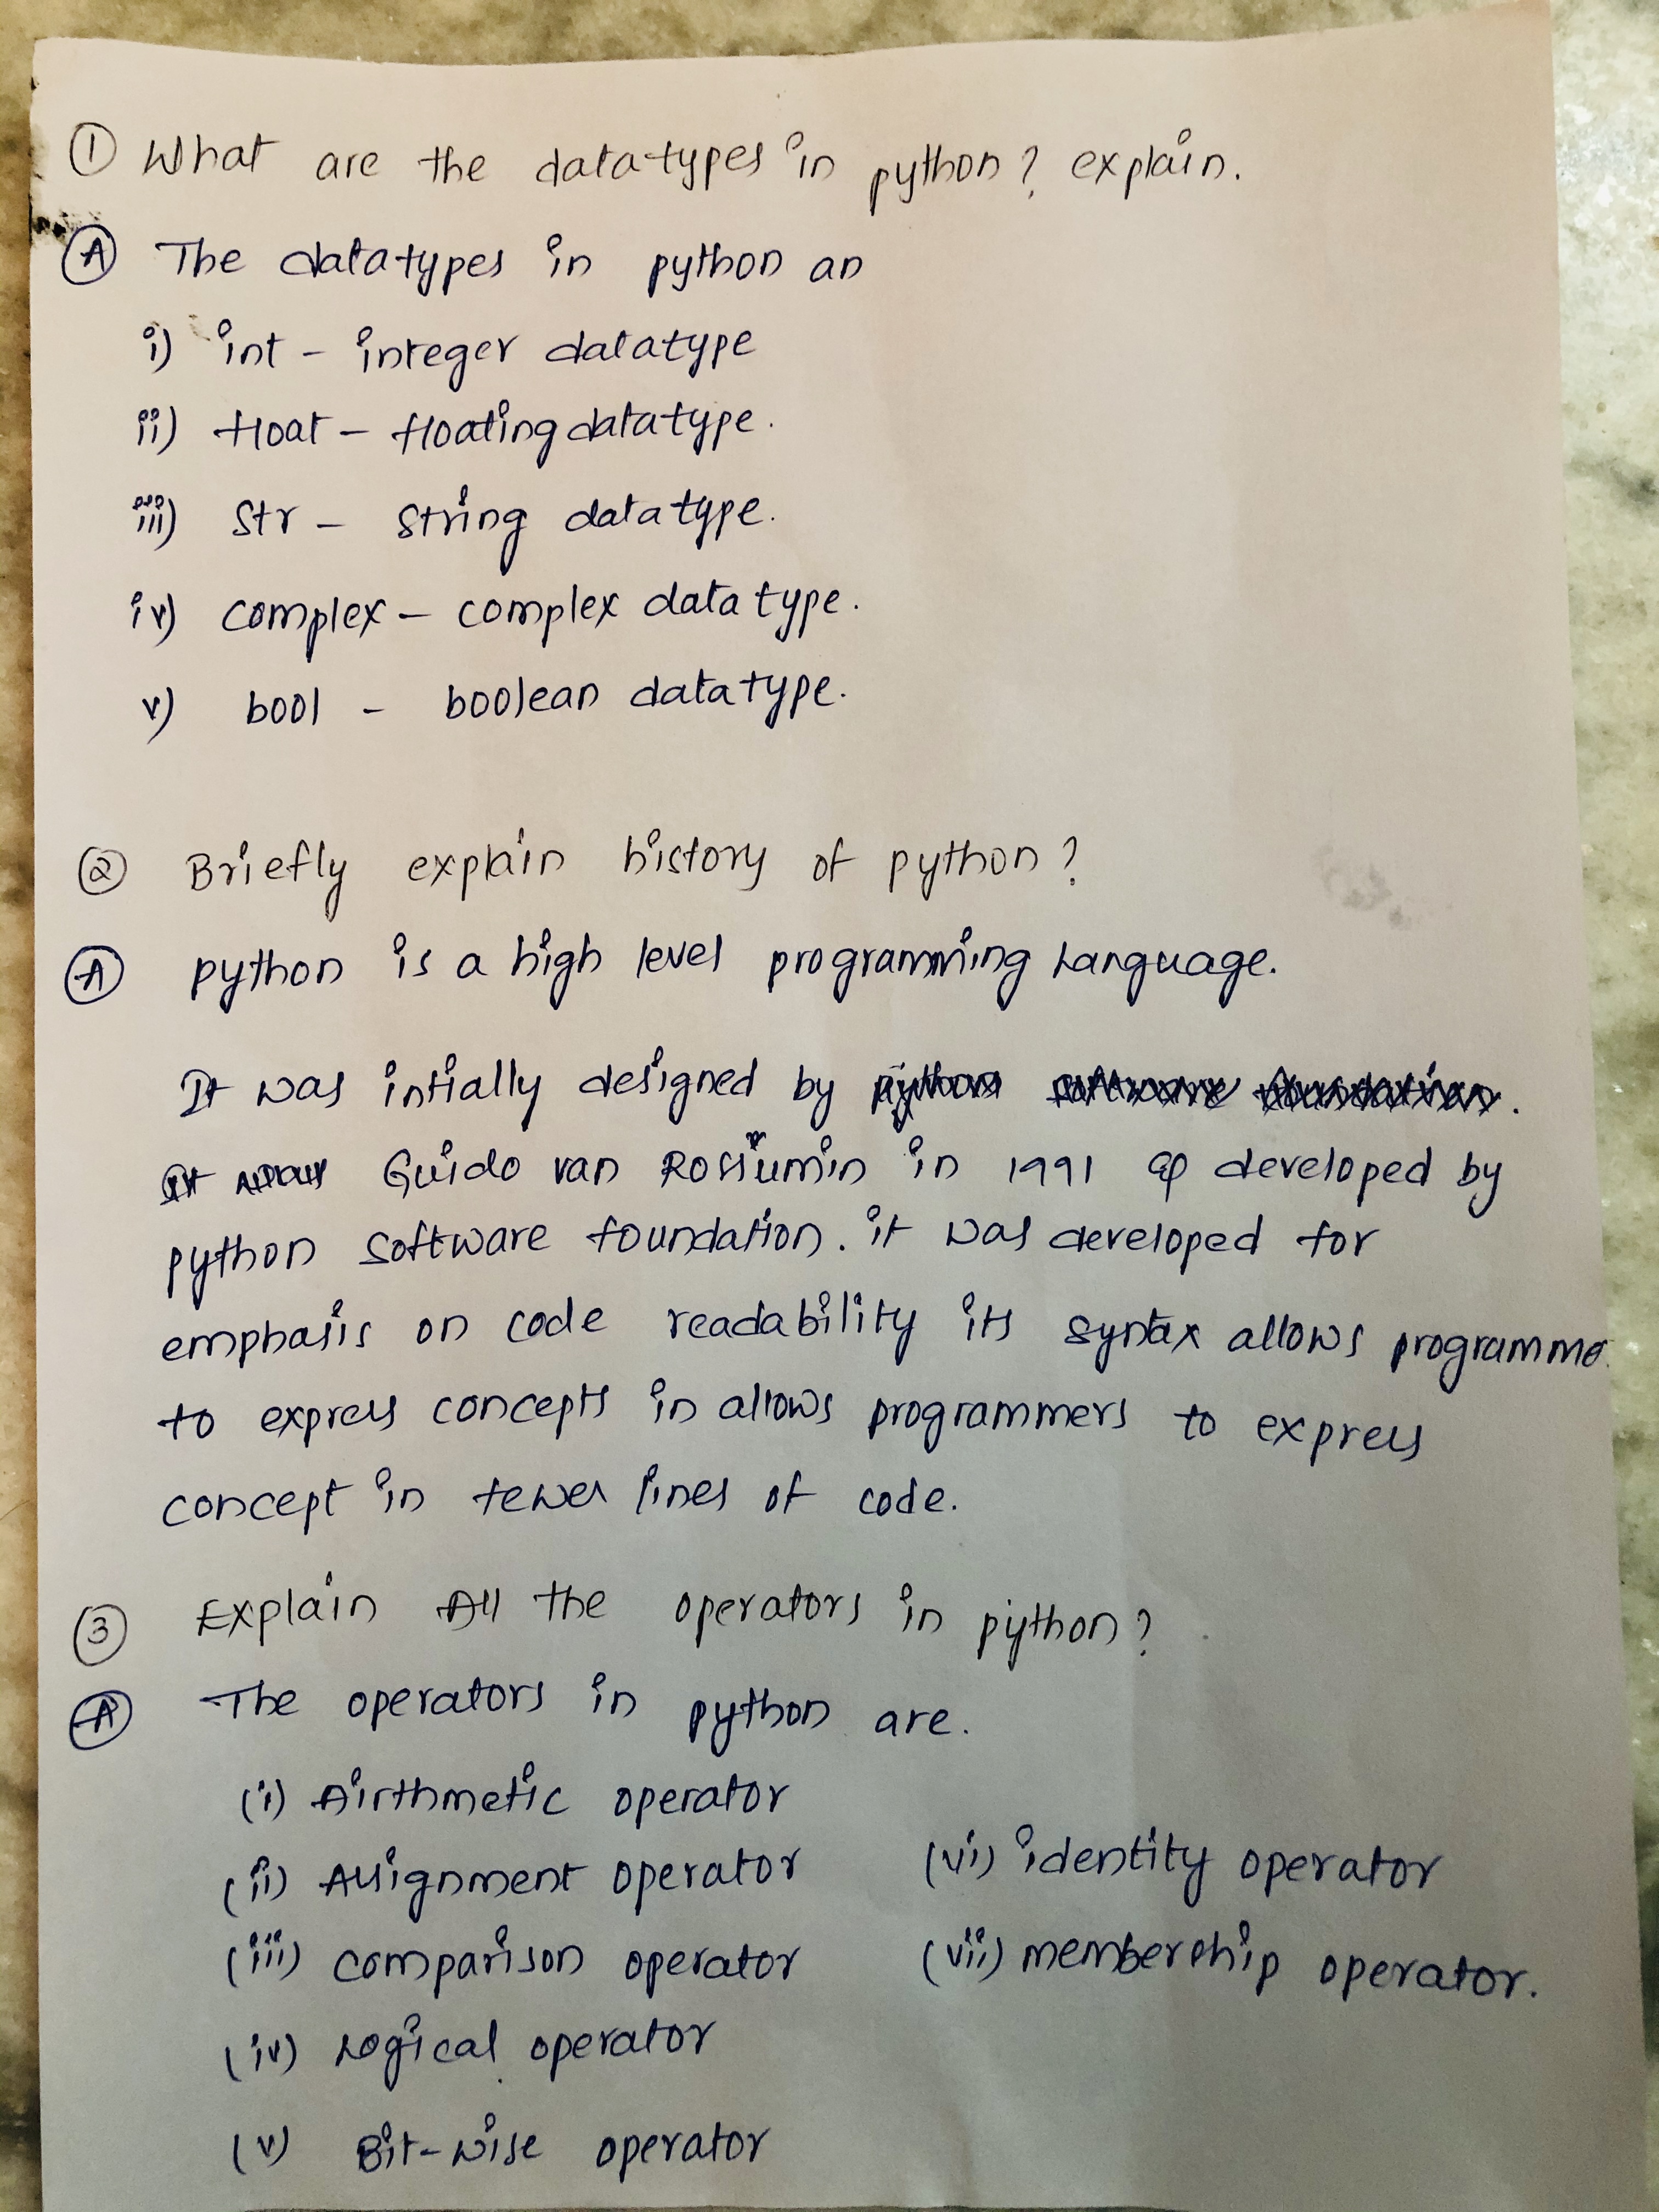 ① What are the datatypes in python? explain.
Ⓐ The datatypes in python an
i) int - integer datatype
ii) float - floating datatype.
iii) str - string datatype.
iv) complex - complex data type.
v) bool - boolean datatype.
② Briefly explain history of python?
Ⓐ python is a high level programming Language.
It was intially designed by python software foundation.
It was Guido van Rossiumin in 1991 & developed by
python software foundation. it was developed for
emphasis on code readability its syntax allows programme
to express concepts in allows programmers to express
concept in fewer lines of code.
③ Explain All the operators in python?
Ⓐ The operators in python are.
(i) Airthmetic operator
(ii) Assignment operator (vi) identity operator
(iii) comparison operator (vii) membership operator.
(iv) Logical operator
(v) Bit-wise operator